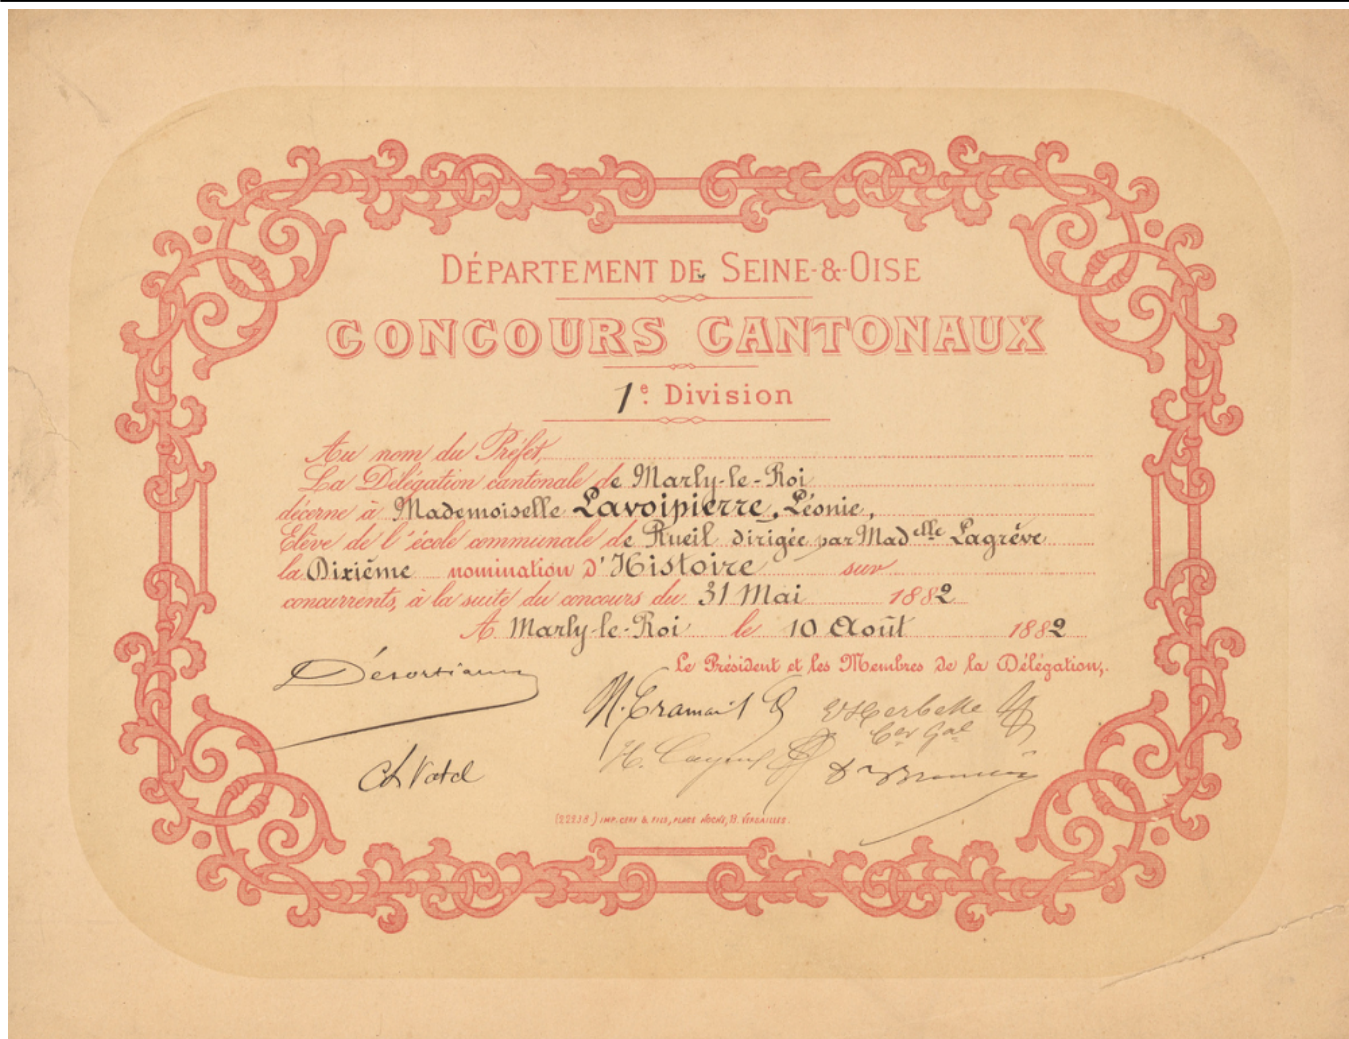 DÉPARTEMENT DE SEINE-&-OISE
CONCOURS CANTONAUX
1e. Division
Au nom du Préfet
La Délégation cantonale de Marly-le-Roi
décerne à Mademoiselle Lavoipierre, Léonie,
Elève de l'école communale de Rueil dirigée par Madelle Lagrève
la Dixième nomination d'Histoire sur
concurrents, à la suite du concours du 31 Mai 1882
A Marly-le-Roi le 10 Août 1882
Le Président et les Membres de la Délégation,
Ch Vatel
(22238) IMP. CERF & FILS, PLACE HOCHE, 13. VERSAILLES.